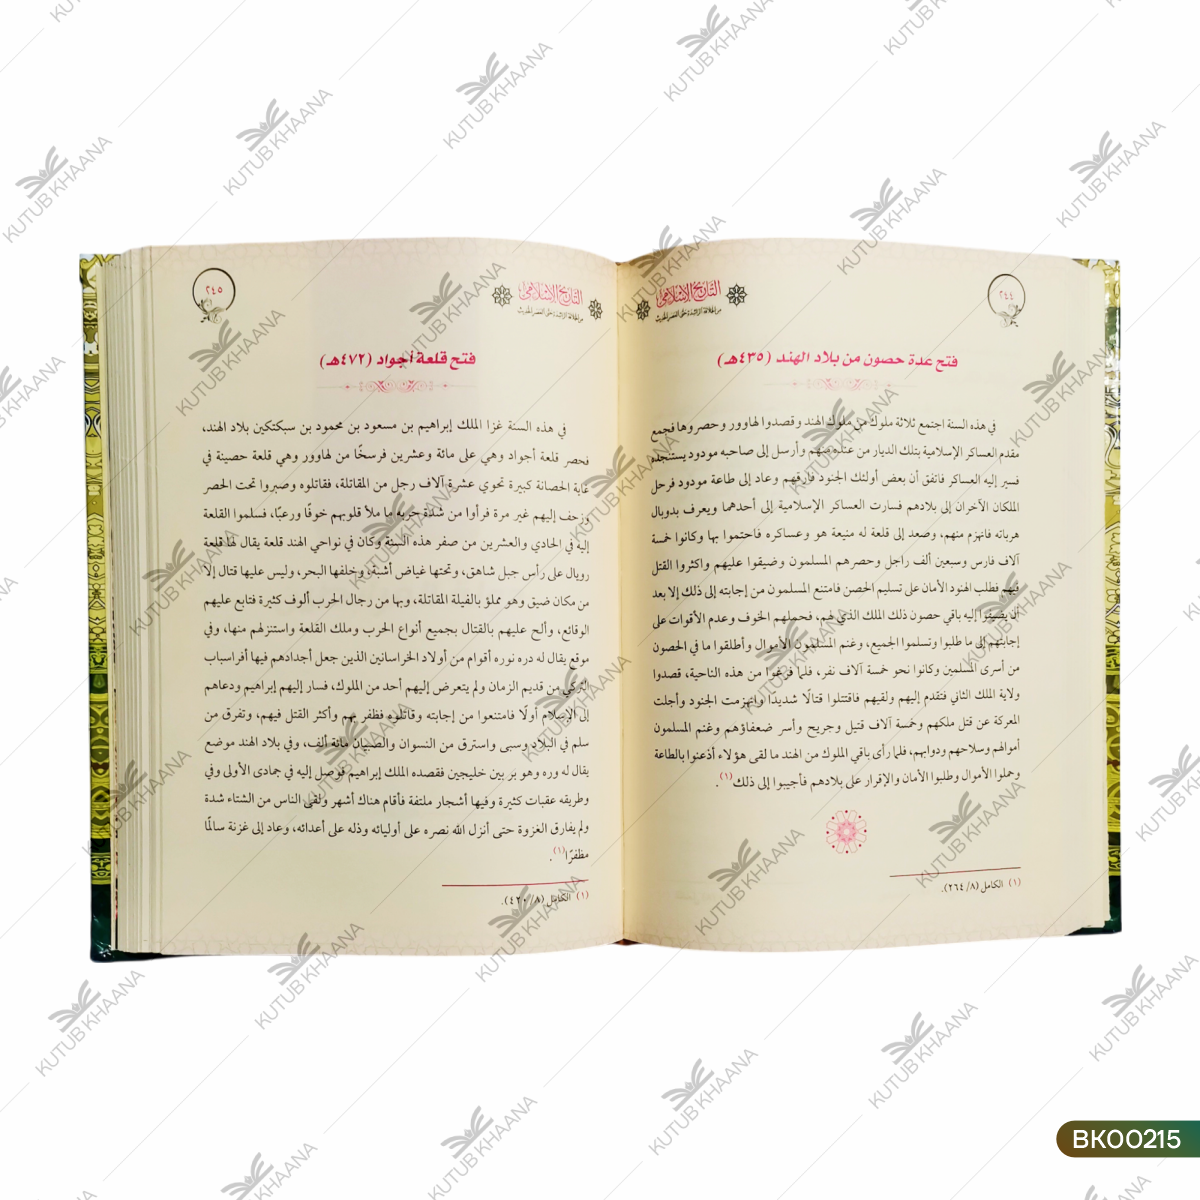 ٢٤٤
التاريخ الإسلامي
من الخلافة الراشدة حتى العصر الحديث
فتح عدة حصون من بلاد الهند (٤٣٥هـ)
في هذه السنة اجتمع ثلاثة ملوك من ملوك الهند وقصدوا لهاوور وحصروها فجمع
مقدم العساكر الإسلامية بتلك الديار من عنده منهم وأرسل إلى صاحبه مودود يستنجده
فسير إليه العساكر فاتفق أن بعض أولئك الجنود فارقهم وعاد إلى طاعة مودود فرحل
الملكان الآخران إلى بلادهم فسارت العساكر الإسلامية إلى أحدهما ويعرف بدوبال
هرباته فانهزم منهم، وصعد إلى قلعة له منيعة هو وعساكره فاحتموا بها وكانوا خمسة
آلاف فارس وسبعين ألف راجل وحصرهم المسلمون وضيقوا عليهم واكثروا القتل
فيهم فطلب الهنود الأمان على تسليم الحصن فامتنع المسلمون من إجابته إلى ذلك إلا بعد
أن يضيفوا إليه باقي حصون ذلك الملك الذي لهم، فحملهم الخوف وعدم الأقوات على
إجابتهم إلى ما طلبوا وتسلموا الجميع، وغنم المسلمون الأموال وأطلقوا ما في الحصون
من أسرى المسلمين وكانوا نحو خمسة آلاف نفر، فلما فرغوا من هذه الناحية، قصدوا
ولاية الملك الثاني فتقدم إليهم ولقيهم فاقتتلوا قتالًا شديدًا وانهزمت الجنود وأجلت
المعركة عن قتل ملكهم وخمسة آلاف قتيل وجريح وأسر ضعفاؤهم وغنم المسلمون
أموالهم وسلاحهم ودوابهم، فلما رأى باقي الملوك من الهند ما لقى هؤلاء أذعنوا بالطاعة
وحملوا الأموال وطلبوا الأمان والإقرار على بلادهم فأجيبوا إلى ذلك(١).
(١) الكامل (٨/ ٢٦٤).
التاريخ الإسلامي
من الخلافة الراشدة حتى العصر الحديث
٢٤٥
فتح قلعة أجواد (٤٧٢هـ)
في هذه السنة غزا الملك إبراهيم بن مسعود بن محمود بن سبكتكين بلاد الهند،
فحصر قلعة أجواد وهي على مائة وعشرين فرسخًا من لهاوور وهي قلعة حصينة في
غاية الحصانة كبيرة تحوي عشرة آلاف رجل من المقاتلة، فقاتلوه وصبروا تحت الحصر
وزحف إليهم غير مرة فرأوا من شدة حربه ما ملأ قلوبهم خوفًا ورعبًا، فسلموا القلعة
إليه في الحادي والعشرين من صفر هذه السنة وكان في نواحي الهند قلعة يقال لها قلعة
روبال على رأس جبل شاهق، وتحتها غياض أشبة، وخلفها البحر، وليس عليها قتال إلا
من مكان ضيق وهو مملؤ بالفيلة المقاتلة، وبها من رجال الحرب ألوف كثيرة فتابع عليهم
الوقائع، وألح عليهم بالقتال بجميع أنواع الحرب وملك القلعة واستنزلهم منها، وفي
موقع يقال له دره نوره أقوام من أولاد الخراسانين الذين جعل أجدادهم فيها أفراسياب
التركي من قديم الزمان ولم يتعرض إليهم أحد من الملوك، فسار إليهم إبراهيم ودعاهم
إلى الإسلام أولًا فامتنعوا من إجابته وقاتلوه فظفر بهم وأكثر القتل فيهم، وتفرق من
سلم في البلاد وسبى واسترق من النسوان والصبيان مائة ألف، وفي بلاد الهند موضع
يقال له وره وهو بر بين خليجين فقصده الملك إبراهيم فوصل إليه في جمادى الأولى وفي
وطريقه عقبات كثيرة وفيها أشجار ملتفة فأقام هناك أشهر ولقى الناس من الشتاء شدة
ولم يفارق الغزوة حتى أنزل الله نصره على أوليائه وذله على أعدائه، وعاد إلى غزنة سالمًا
مظفرًا(١).
(١) الكامل (٨/ ٤٢٠).
BK00215
KUTUB KHAANA